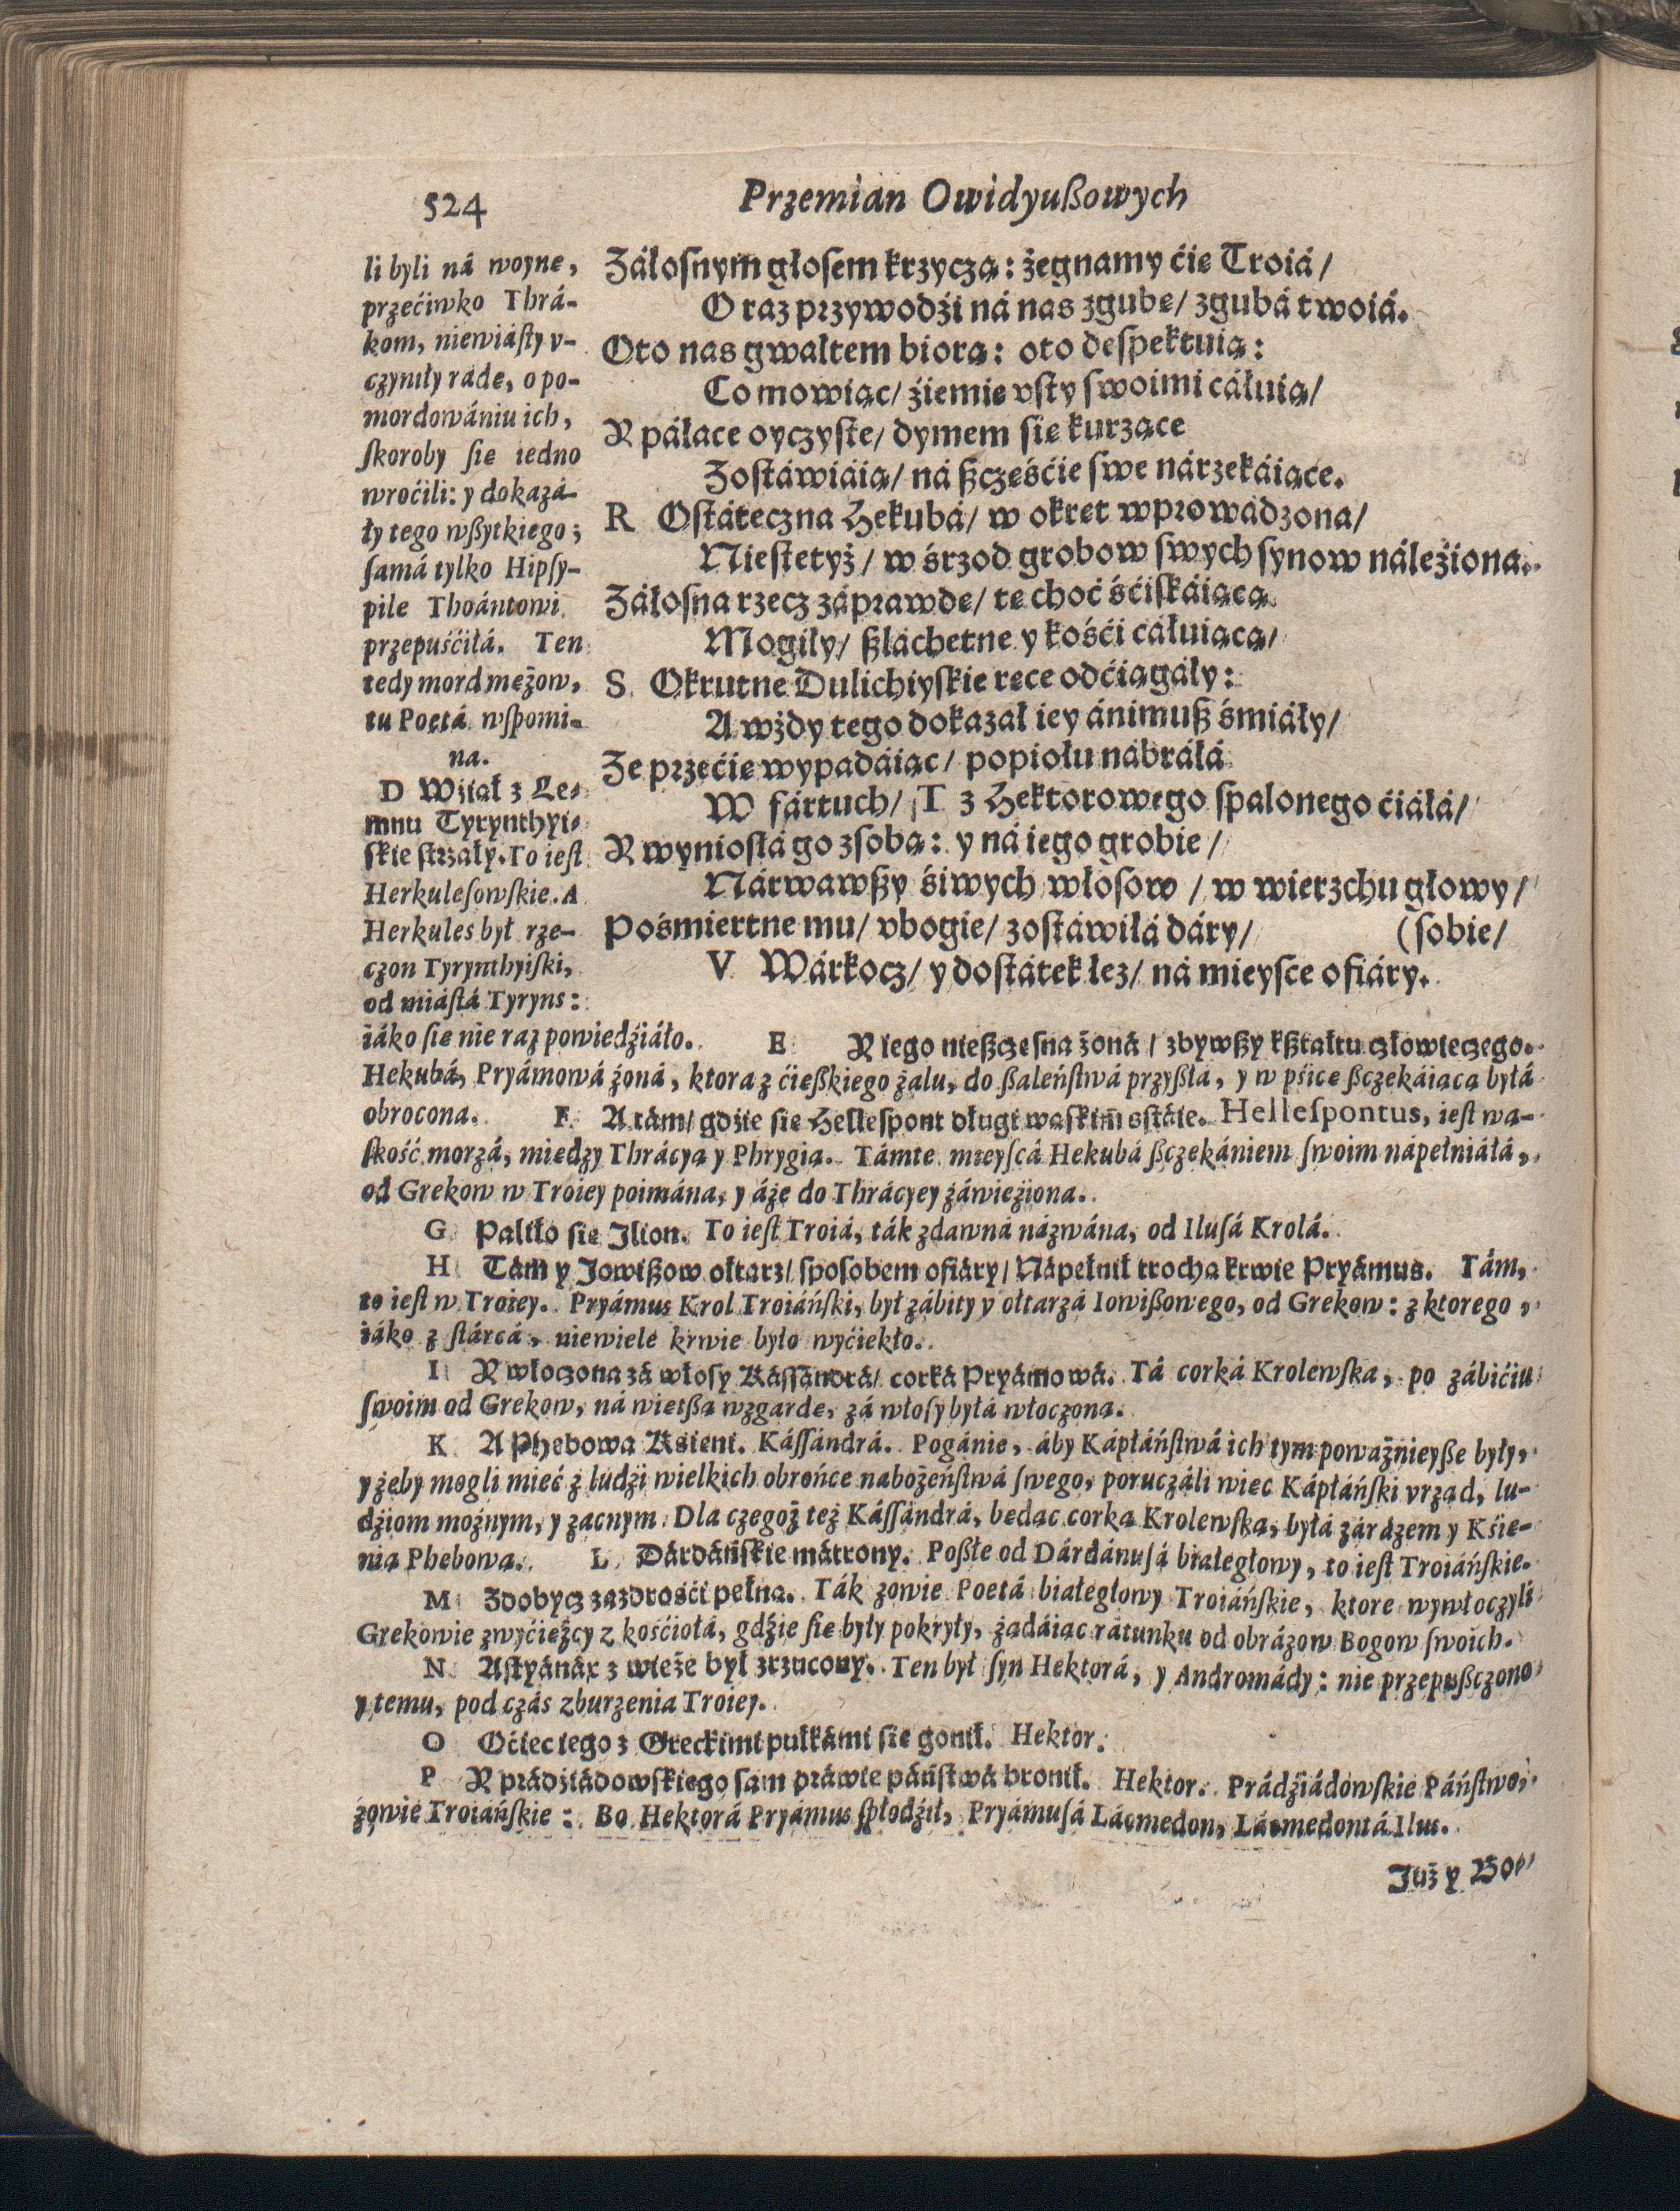 524
Przemian Owidyußowych
li byli ná woyne,
przećiwko Thrá-
kom, niewiásty v-
czynıły rade, o po-
mordowániu ich,
skoroby sie iedno
wroćili: y dokazá-
ły tego wßytkiego;
samá tylko Hipsy-
pile Thoántowi
przepuśćiłá. Ten
tedy mord mężow,
tu Poetá wspomi-
na.
D Wźiął z Le-
mnu Tyrynthyi-
skie strzały. To iest
Herkulesowskie. A
Herkules był rze-
czon Tyrynthyiski,
od miástá Tyryns:
Záłosnym głosem krzyczą: żegnamy ćie Troiá/
O raz przywodźi ná nas zgubę/ zgubá twoiá.
Oto nas gwałtem biorą: oto despektuią:
Co mowiąc/ źiemie vsty swoimi cáłuią/
Y páłace oyczyste/ dymem sie kurzące
Zostáwiáią/ ná ßczęśćie swe nárzekáiące.
R Ostáteczna Hekubá/ w okręt wprowádzona/
Niestetyż/ w śrzod grobow swych synow náleźiona.
Záłosna rzecz záprawdę/ tę choć śćiskáiącą
Mogiły/ ßláchetne y kośći cáłuiącą/
S Okrutne Dulichiyskie ręce odćiągáły:
A wżdy tego dokazał iey ánimuß śmiáły/
Ze przećie wypadáiąc/ popiołu nábráłá
W fártuch/ T z Hektorowego spalonego ćiáłá/
Y wyniosłá go z sobą: y ná iego grobie/
Nárwawßy śiwych włosow / w wierzchu głowy/
Pośmiertne mu/ vbogie/ zostáwiłá dáry/ (sobie/
V Wárkocz/ y dostátek łez/ ná mieysce ofiáry.
iáko sie nie raz powiedźiáło. E Y iego nießczęsna żoná / zbywßy kßtałtu człowieczego.
Hekubá, Pryámowá żoná, ktora z ćiężkiego żalu, do ßaleństwá przyßłá, y w pśice ßczekáiącą byłá
obrocona. F A tám/ gdźie sie Hellespont długi wąskim sstáie. Hellespontus, iest wą-
skość morzá, miedzy Thrácyą y Phrygią. Támte mieyscá Hekubá ßczekániem swoim nápełniáłá,
od Grekow w Troiey poimána, y áże do Thrácyey záwieźiona.
G Paliło sie Ilion. To iest Troiá, ták zdawná názwána, od Ilusá Krolá.
H Tám y Jowißow ołtarz/ sposobem ofiáry/ Nápełnił trochą krwie Pryámus. Tám,
to iest w Troiey. Pryámus Krol Troiáński, był zábity v ołtarzá Iowißowego, od Grekow: z ktorego,
iáko z stárcá, niewiele krwie było wyćiekło.
I Y włoczona zá włosy Kássándrá/ corká Pryámowá. Tá corká Krolewska, po zábićiu
swoim od Grekow, ná więtßą wzgardę, zá włosy byłá włoczona.
K A Phebowa Kśieni. Kássándrá. Pogánie, áby Kápłáństwá ich tym poważnieyße były,
y żeby mogli mieć z ludźi wielkich obrońce nabożeństwá swego, poruczáli więc Kápłáński vrząd, lu-
dźiom możnym, y zacnym. Dla czegoż też Kássándrá, będąc corką Krolewską, byłá zárázem y Kśie-
nią Phebową. L Dárdáńskie mátrony. Poßłe od Dárdánusá białegłowy, to iest Troiáńskie.
M Zdobycz zazdrośći pełna. Ták zowie Poetá białegłowy Troiáńskie, ktore wywłoczyli
Grekowie zwyćiężcy z kośćiołá, gdźie sie były pokryły, żądáiąc rátunku od obrázow Bogow swoich.
N Astyánáx z wieże był zrzucony. Ten był syn Hektorá, y Andromády: nie przepußczono
y temu, pod czás zburzenia Troiey.
O Oćiec iego z Greckimi pułkámi sie gonił. Hektor.
P Y prádźiádowskiego sam práwie páństwá bronił. Hektor. Prádźiádowskie Páństwo,
zowie Troiáńskie: Bo Hektorá Pryámus spłodźił, Pryámusá Láomedon, Láomedontá Ilus.
Już y Bo-